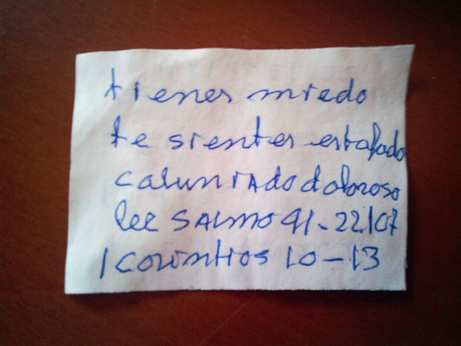 tienes miedo
te sientes estafado
caluniado doloroso
lee SALMO 91-22.107
1 CORINTIOS 10-13